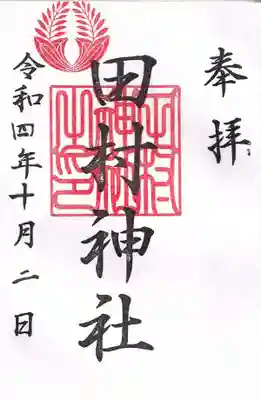 奉拝
田村神社
令和四年十月二日